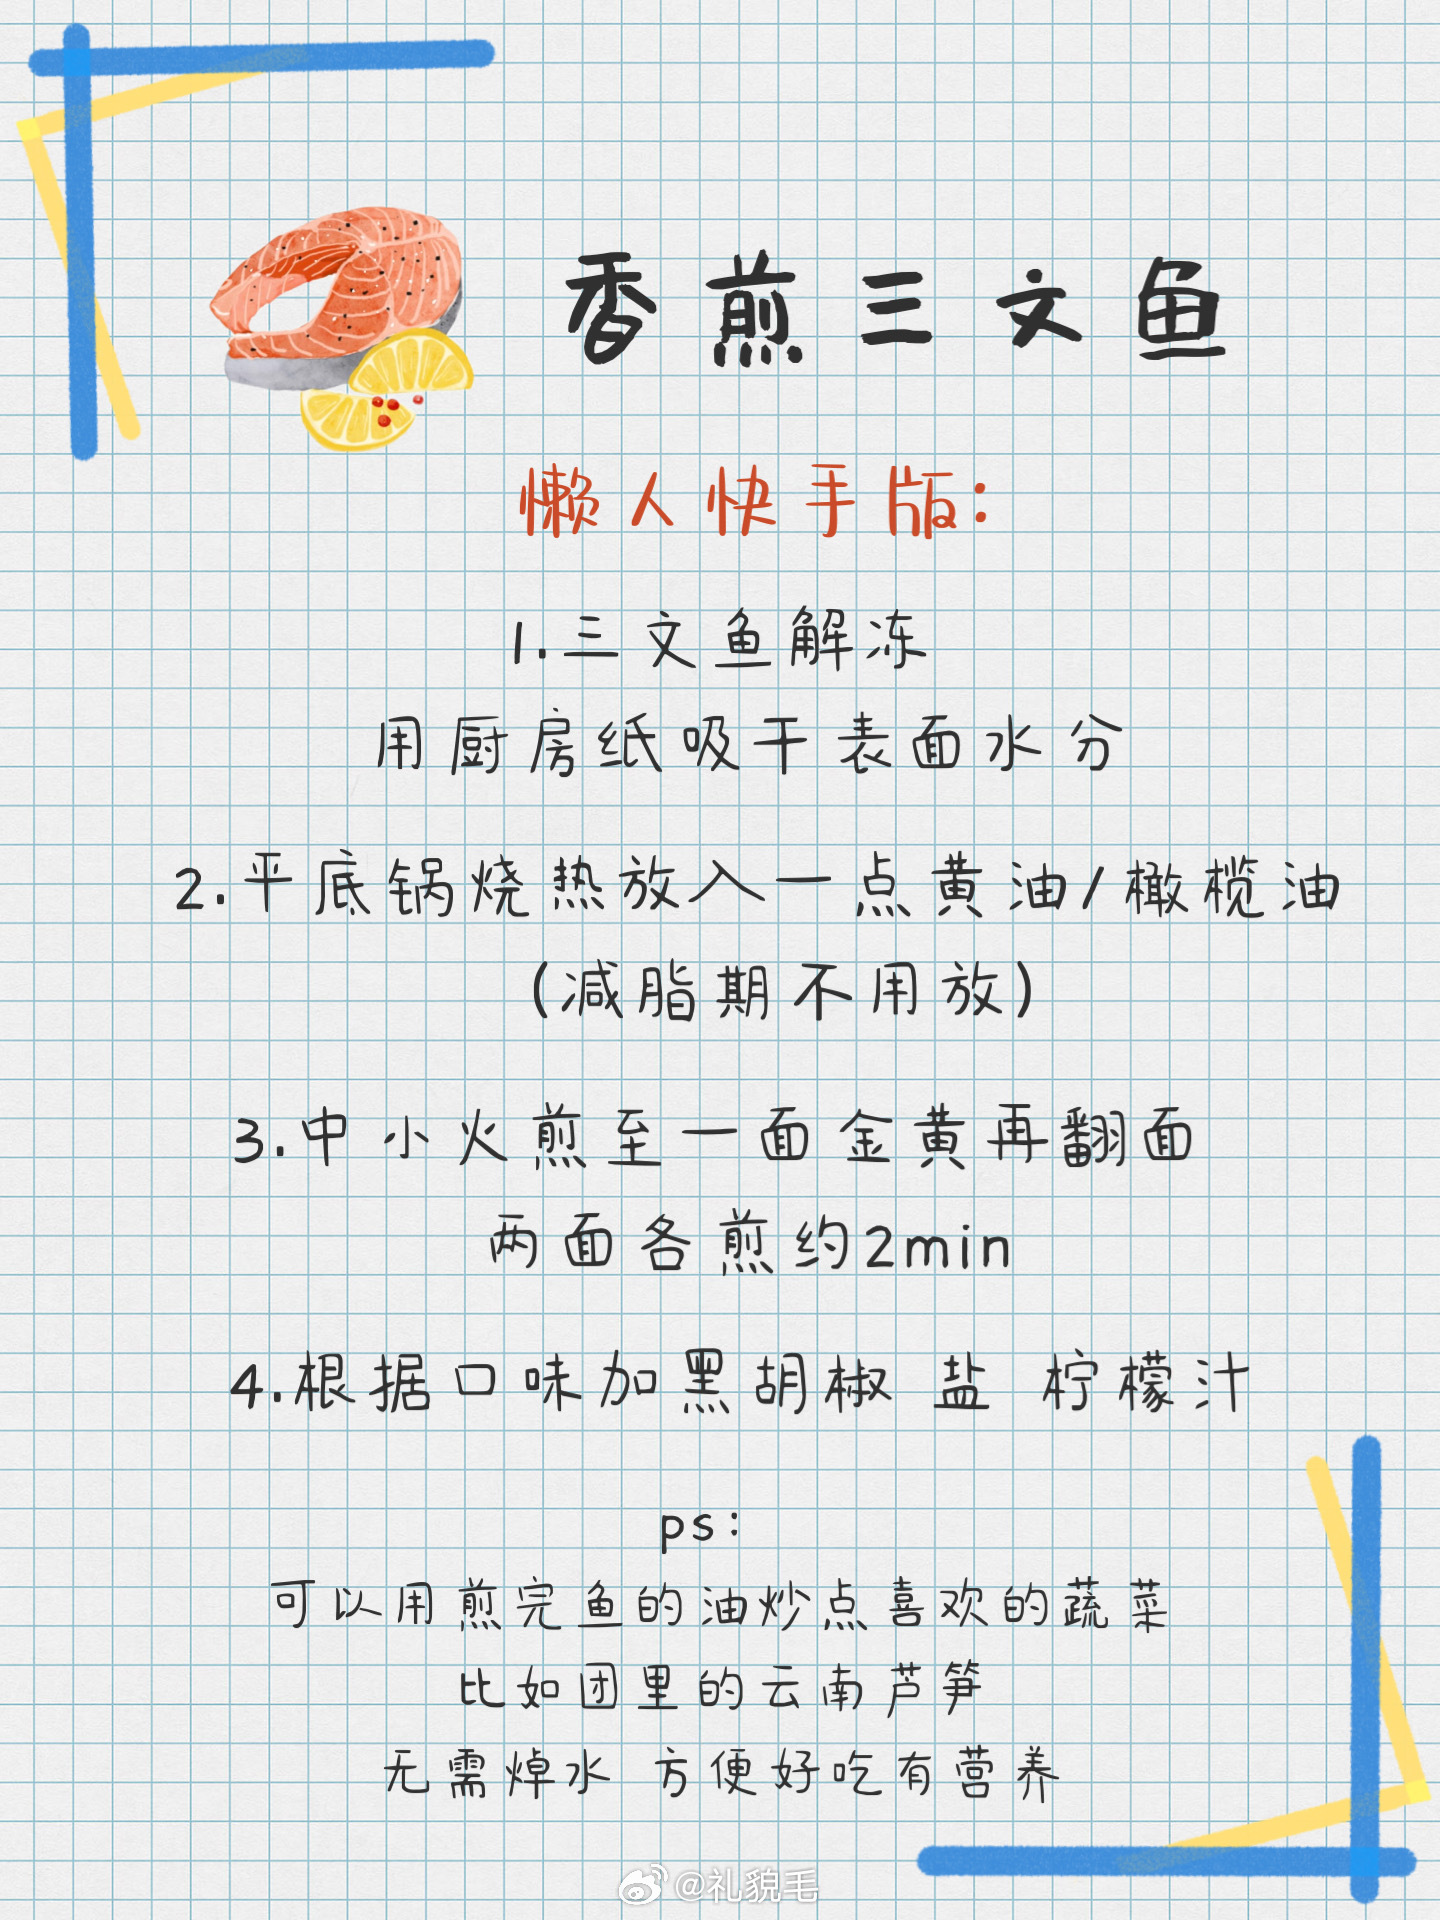 香煎三文鱼
懒人快手版:
1.三文鱼解冻
用厨房纸吸干表面水分
2.平底锅烧热放入一点黄油/橄榄油
(减脂期不用放)
3.中小火煎至一面金黄再翻面
两面各煎约2min
4.根据口味加黑胡椒 盐 柠檬汁
ps:
可以用煎完鱼的油炒点喜欢的蔬菜
比如团里的云南芦笋
无需焯水 方便好吃有营养
@礼貌毛